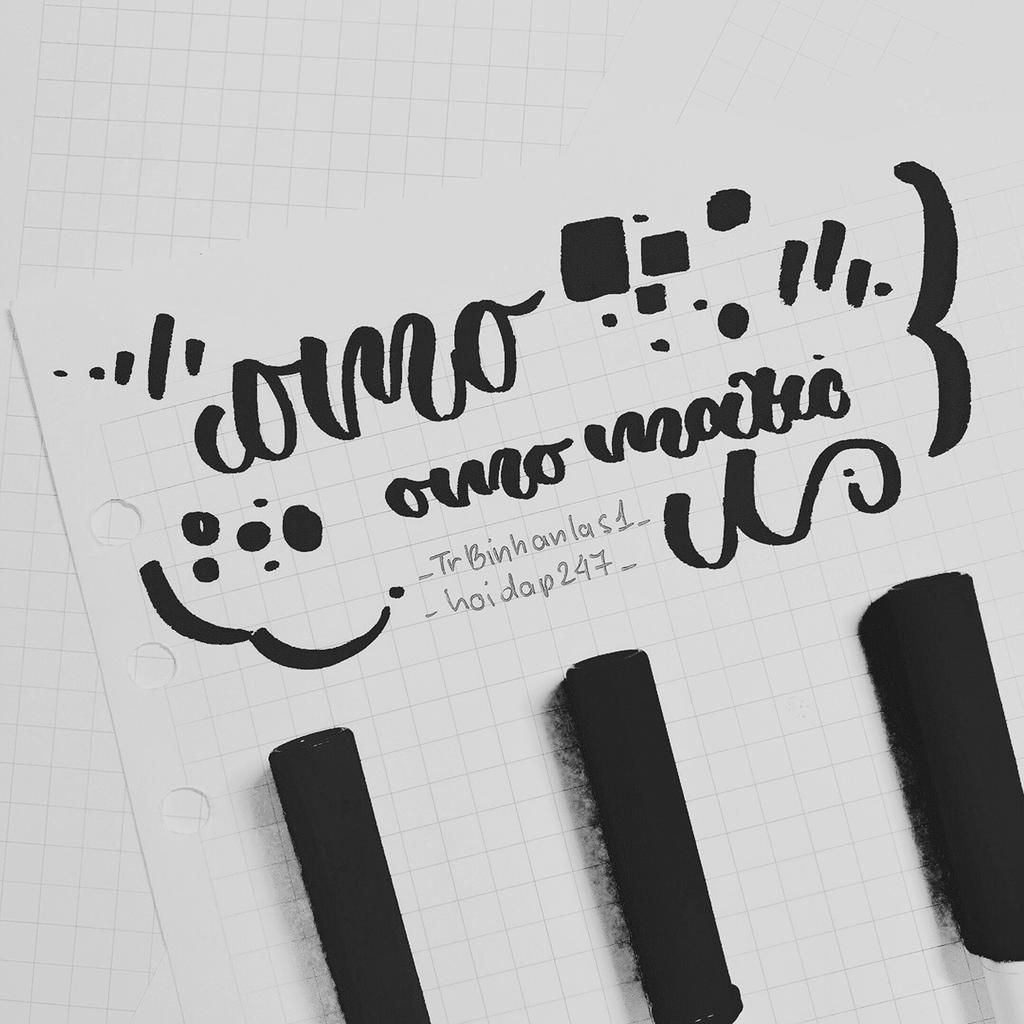 omo
omo maitic
_TrBinhanlas1_
_hoidap247_